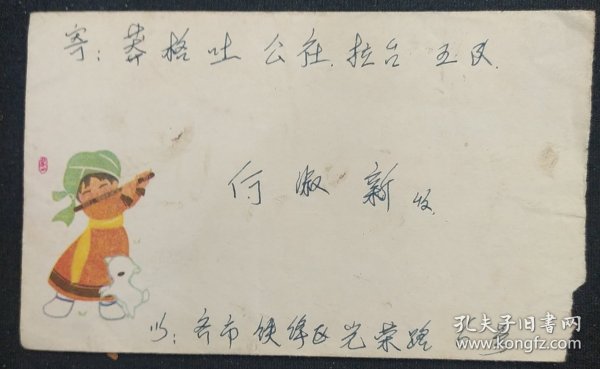 寄：莽格吐 公社 拉台 五队
何淑新 收
齐市铁锋区光荣路
孔夫子旧书网
www.kongfz.com